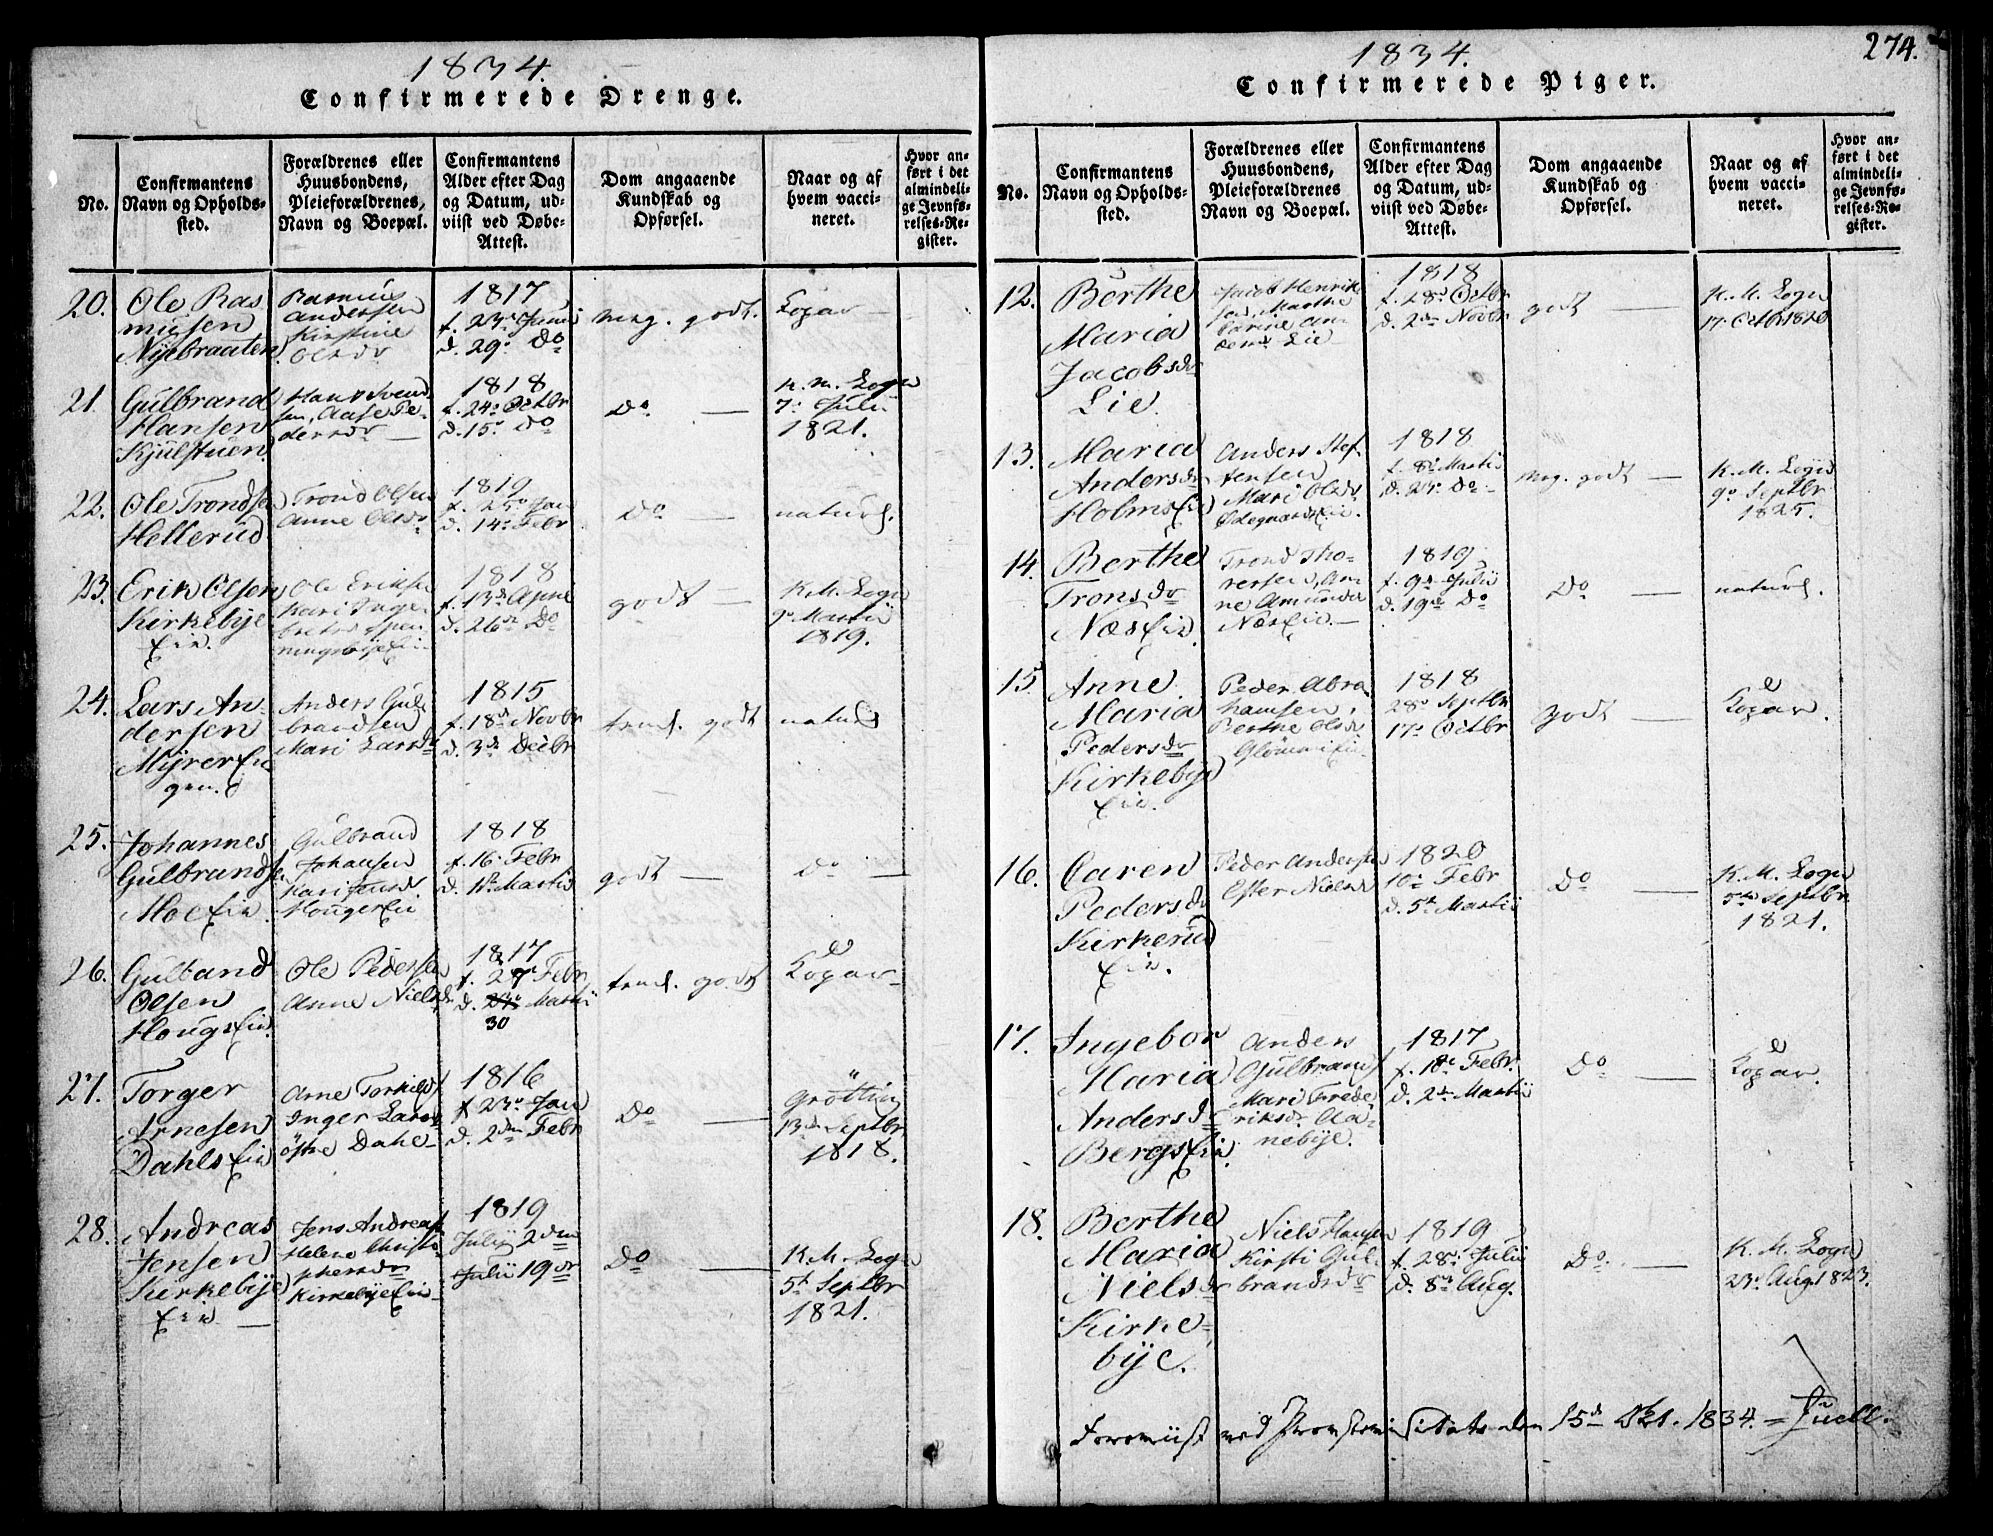 1834.
Confirmerede Drenge.
No.
Confirmantens
Navn og Opholds-
sted.
Forældrenes eller
Huusbondens,
Pleieforældrenes,
Navn og Boepæl.
Confirmantens
Alder efter Dag
og Datum, ud-
viist ved Døbe-
Attest.
Dom angaaende
Kundskab og
Opførsel.
Naar og af
hvem vacci-
neret.
Hvor an-
ført i det
almindeli-
ge Jevnfø-
relses-Re-
gister.
20.
Ole Ras
musen
Nyebraaten
Rasmus
Andersen
Kirstine
Olsdr
1817
f. 23de Junii
d. 29de Do
meg. godt.
Kopar
21.
Gulbrand
Hansen
Kjulstuen
Hans Svend
sen, Aase Pe
dersdr
1818
f. 24de Octbr
d. 15de Do
Do
K. M. Logn
7de Julii
1821.
22.
Ole Trondsen
Hellerud
Trond Olsen
Anne Olsdr
1819
f. 25de Jan
d. 14de Febr
Do
naturl.
23.
Erik Olsen
Kirkebye
Eie.
Ole Eriksen
Kari Inge
bretsd
1818
f. 13de
d. 26de Do
godt
K. M. Logn
9de Martii
1819.
24.
Lars An-
dersen
Myrer Eie
gen.
Anders Gul
brandsen
Mari Larsdr
1815
f. 18de Novbr
d. 3de Decbr
tem. godt
naturl
25.
Johannes
Gulbrandsen
Moe Eie.
Gulbrand
Johansen
Kari Jensdr
Houger Eie
1818
f. 16. Febr
d. 1ste Martii
godt
Do
26.
Gulbrand
Olsen
Hougs Eie.
Ole Pedersen
Anne Nielsdr
1817
f. 27de Febr
d. Martii
30
tem. godt
Kopar
27.
Torger
Arnesen
Dahls Eie
Arne Torkilds
Inger Larsdr
östre Dahl
1816
f. 23de Jan
d. 2den Febr
Do
Gröttin
13de Septbr
1818.
28.
Andreas
Jensen
Kirkebye
Eie
Jens Andreas
Helene Christo
phersdr
Kirkebye Eie
1819
Julij 2den
Julii 19de
Do
K. M. Logn
5te Septbr
1821.
1834.
274.
Confirmerede Piger.
No.
Confirmantens
Navn og Opholds-
sted.
Forældrenes eller
Huusbondens,
Pleieforældrenes
Navn og Boepæl.
Confirmantens
Alder efter Dag
og Datum, ud-
viist ved Døbe-
Attest.
Dom angaaende
Kundskab og
Opførsel.
Naar og af
hvem vacci-
neret.
Hvor an-
ført i det
almindeli-
ge Jevnfø-
relses-Re-
gister.
12.
Berthe
Maria
Jacobsdr
Lie.
Jacob Henrik
sen, Marthe
Lie
1818
f. 28de Octbr
d. 2den Novbr
godt
K. M. Logn
17de Octbr 1820
13.
Maria
Andersdr
Holms Eie
Anders Stef
fensen
Mari Olsdr
Ødegaards Eie.
1818
f. 8de Martii
d. 23de Do
meg. godt
K. M. Logn
9de Septbr
1825.
14.
Berthe
Tronsdr
Næs Eie.
Trond Tho-
rersen, An
ne Amunds
Næs Eie.
1819
f. 9de Julii
d. 19de Do
Do
naturl.
15
Anne
Maria
Pedersdr
Kirkebye
Eie.
Peder Abra
hamsen,
Berthe Olsdr
Glömmi Eie
1818
28de Septbr
17de Octbr
godt
Kopar.
16.
Caren
Pedersdr
Kirkerud
Eie.
Peder Andersen
Ester Nielsd
1820
10de Febr
d. 5te Martii
Do
K. M. Logn
5te Septbr
1821.
17.
Ingebor
Maria
Andersdr
Bergs Eie.
Anders
Gulbrands
Mari Frede
riksdr Aa-
nebye.
1817
f. 18de Febr.
d. 2den Martii
Do
Kopar.
18.
Berthe
Maria
Nielsdr
Kirke-
bye.
Niels Hansen
Kirsti Gul
brandsdr
1819
f. 28de Julii
d. 8de Aug.
Do.
K. M. Logn
23de Aug. 1823.
Foreviist ved Provstevisitats den 15de Okt. 1834. Juell.